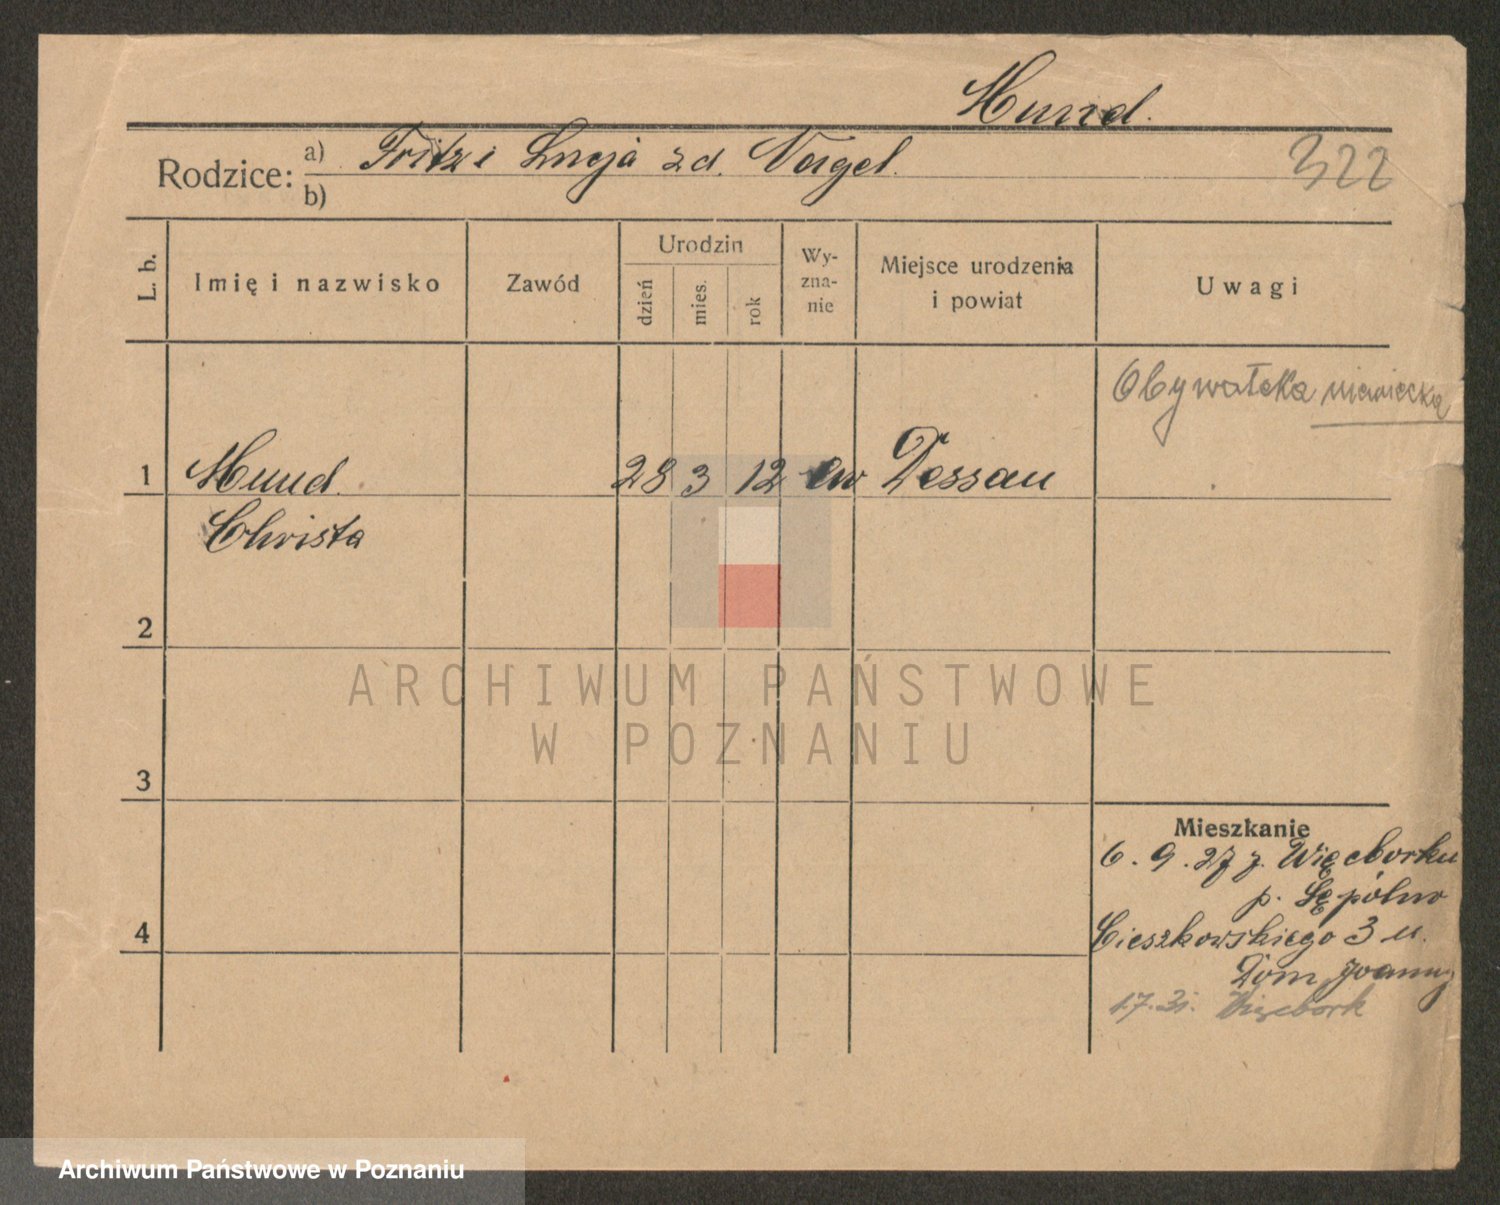 Mund.
Rodzice: a) Fritz i Lucja zd. Nagel.
322
b)
L. b.
Imię i nazwisko
Zawód
Urodzin
dzień
mies.
rok
Wy-
zna-
nie
Miejsce urodzenia
i powiat
Uwagi
Obywatelka niemiecka
1 Mund 28 3 12 ew Dessau
Christa
2
ARCHIWUM PAŃSTWOWE
W POZNANIU
3
Mieszkanie
6. 9. 27 z. Więcborku
p. Sępólno
4
Cieszkowskiego 3 u.
Dom Joanny
17. 31. Więcbork
Archiwum Państwowe w Poznaniu